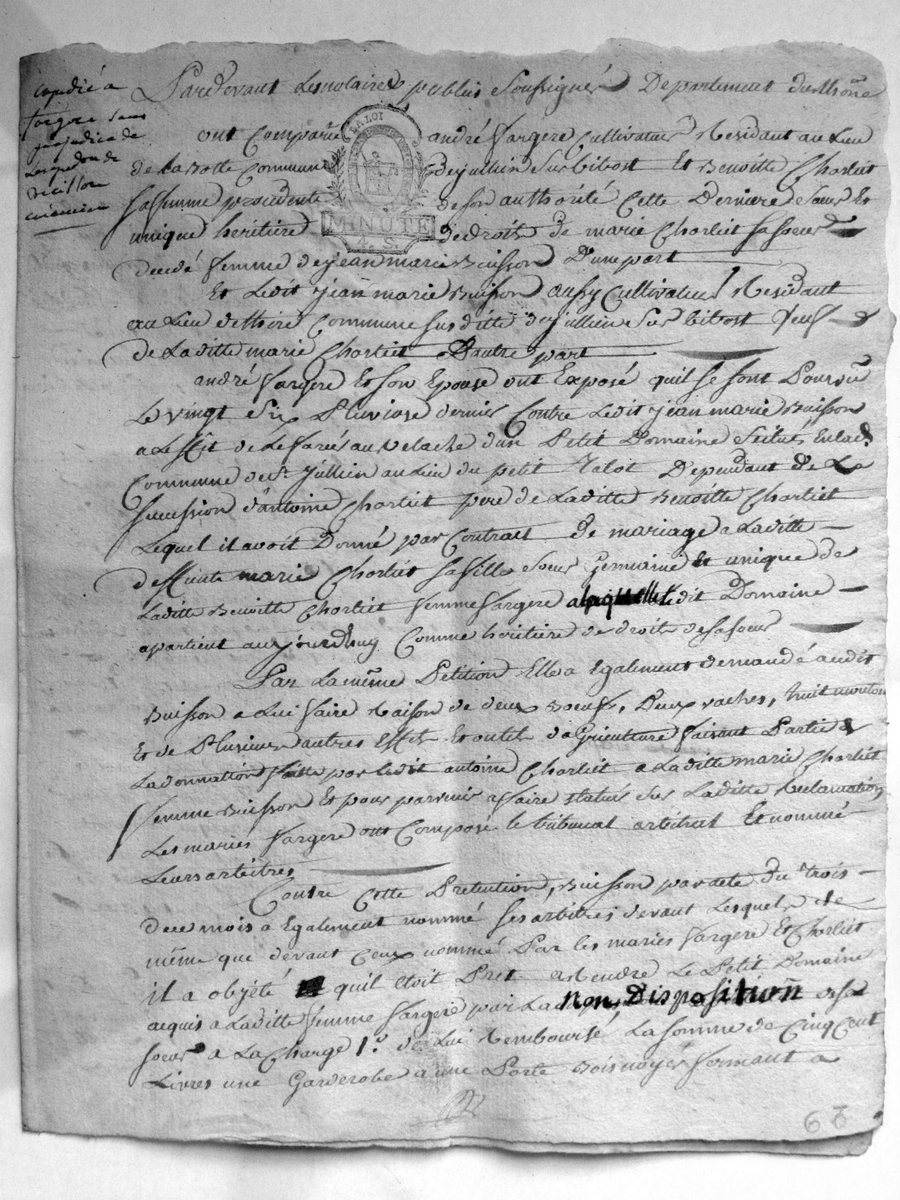 expédié a
fargere sans
prejudice de
Pardevant Les notaires publics Soussignés Departement du Rhône
ont Comparu andré fargere Cultivateur Residant au Lieu
de La Commune de jullien Sur bibost Et Benoitte Chorliet
Sa femme procedente de son authorité Cette Derniere Soeur Et
unique heritiere de droit de marie Chorliet Sa Soeur
decedé femme de jean marie Buisson D'une part
Et Ledit jean marie Buisson aussy Cultivateur Residant
au Lieu de Commune Susditte de jullien Sur bibost veuf
de Laditte marie Chorliet D'autre part
andré fargere Et Son Epouse ont Exposé quil se sont Pourvu
Le vingt Six Pluviose dernier Contre Ledit jean marie Buisson
a Leffet de Le faire au relache d'un Petit Domaine Scitué En Lad.
Commune de St. jullien au Lieu du petit Dependant de La
Succession d'antoine Chorliet pere de Laditte Benoitte Chorliet
Lequel il avoit Donné par Contrat de mariage a Laditte
deffunte marie Chorliet Sa fille Soeur Germaine Et unique de
Laditte Benoitte Chorliet femme fargere a laquelle Ledit Domaine
apartient aujourdhuy Comme heritiere de droit de Sa Soeur
Par La même Petition Elle a Egalement demandé audit
Buisson a Lui faire Raison de deux Boeufs, Deux vaches, huit moutons
Et de Plusieurs autres Effets Et outils d'agriculture faisant Partie de
La donnation faitte par Ledit antoine Chorliet a Laditte marie Chorliet
femme Buisson Et pour parvenir a faire statuer Sur Laditte Reclamation
Les mariés fargere ont Composé le tribunal arbitral Et nommé
Leurs arbitres
Contre Cette Pretention, Buisson par acte du trois
de ce mois a Egalement nommé ses arbitres devant Lesquels de
même que devant Ceux nommé Par les mariés fargere Et Chorliet
il a objété quil etoit Pret a Rendre Le Petit Domaine
acquis a Laditte femme fargere par La non Disposition de Sa
Soeur a La Charge 1.° de Lui Remboursé La Somme de Cinq Cent
Livres une Garderobe a une Porte Bois noyer fermant a
BALOT
MINUTE
4. S.
68